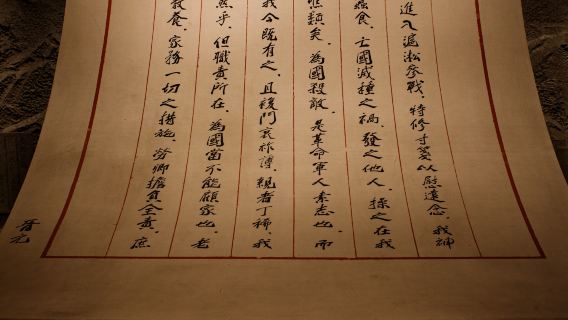 進入滬淞參戰,特修寸箋以慰遠念。我神
蠶食,亡國滅種之禍,發之他人,操之在我
噍類矣。為國殺敵,是革命軍人素志也。而
我今既有之,且復門衰祚薄,親者丁稀,我
然乎,但職責所在,為國當不能顧家也。老
教養,家務一切之措施,勞卿擔負全責,庶
晉元